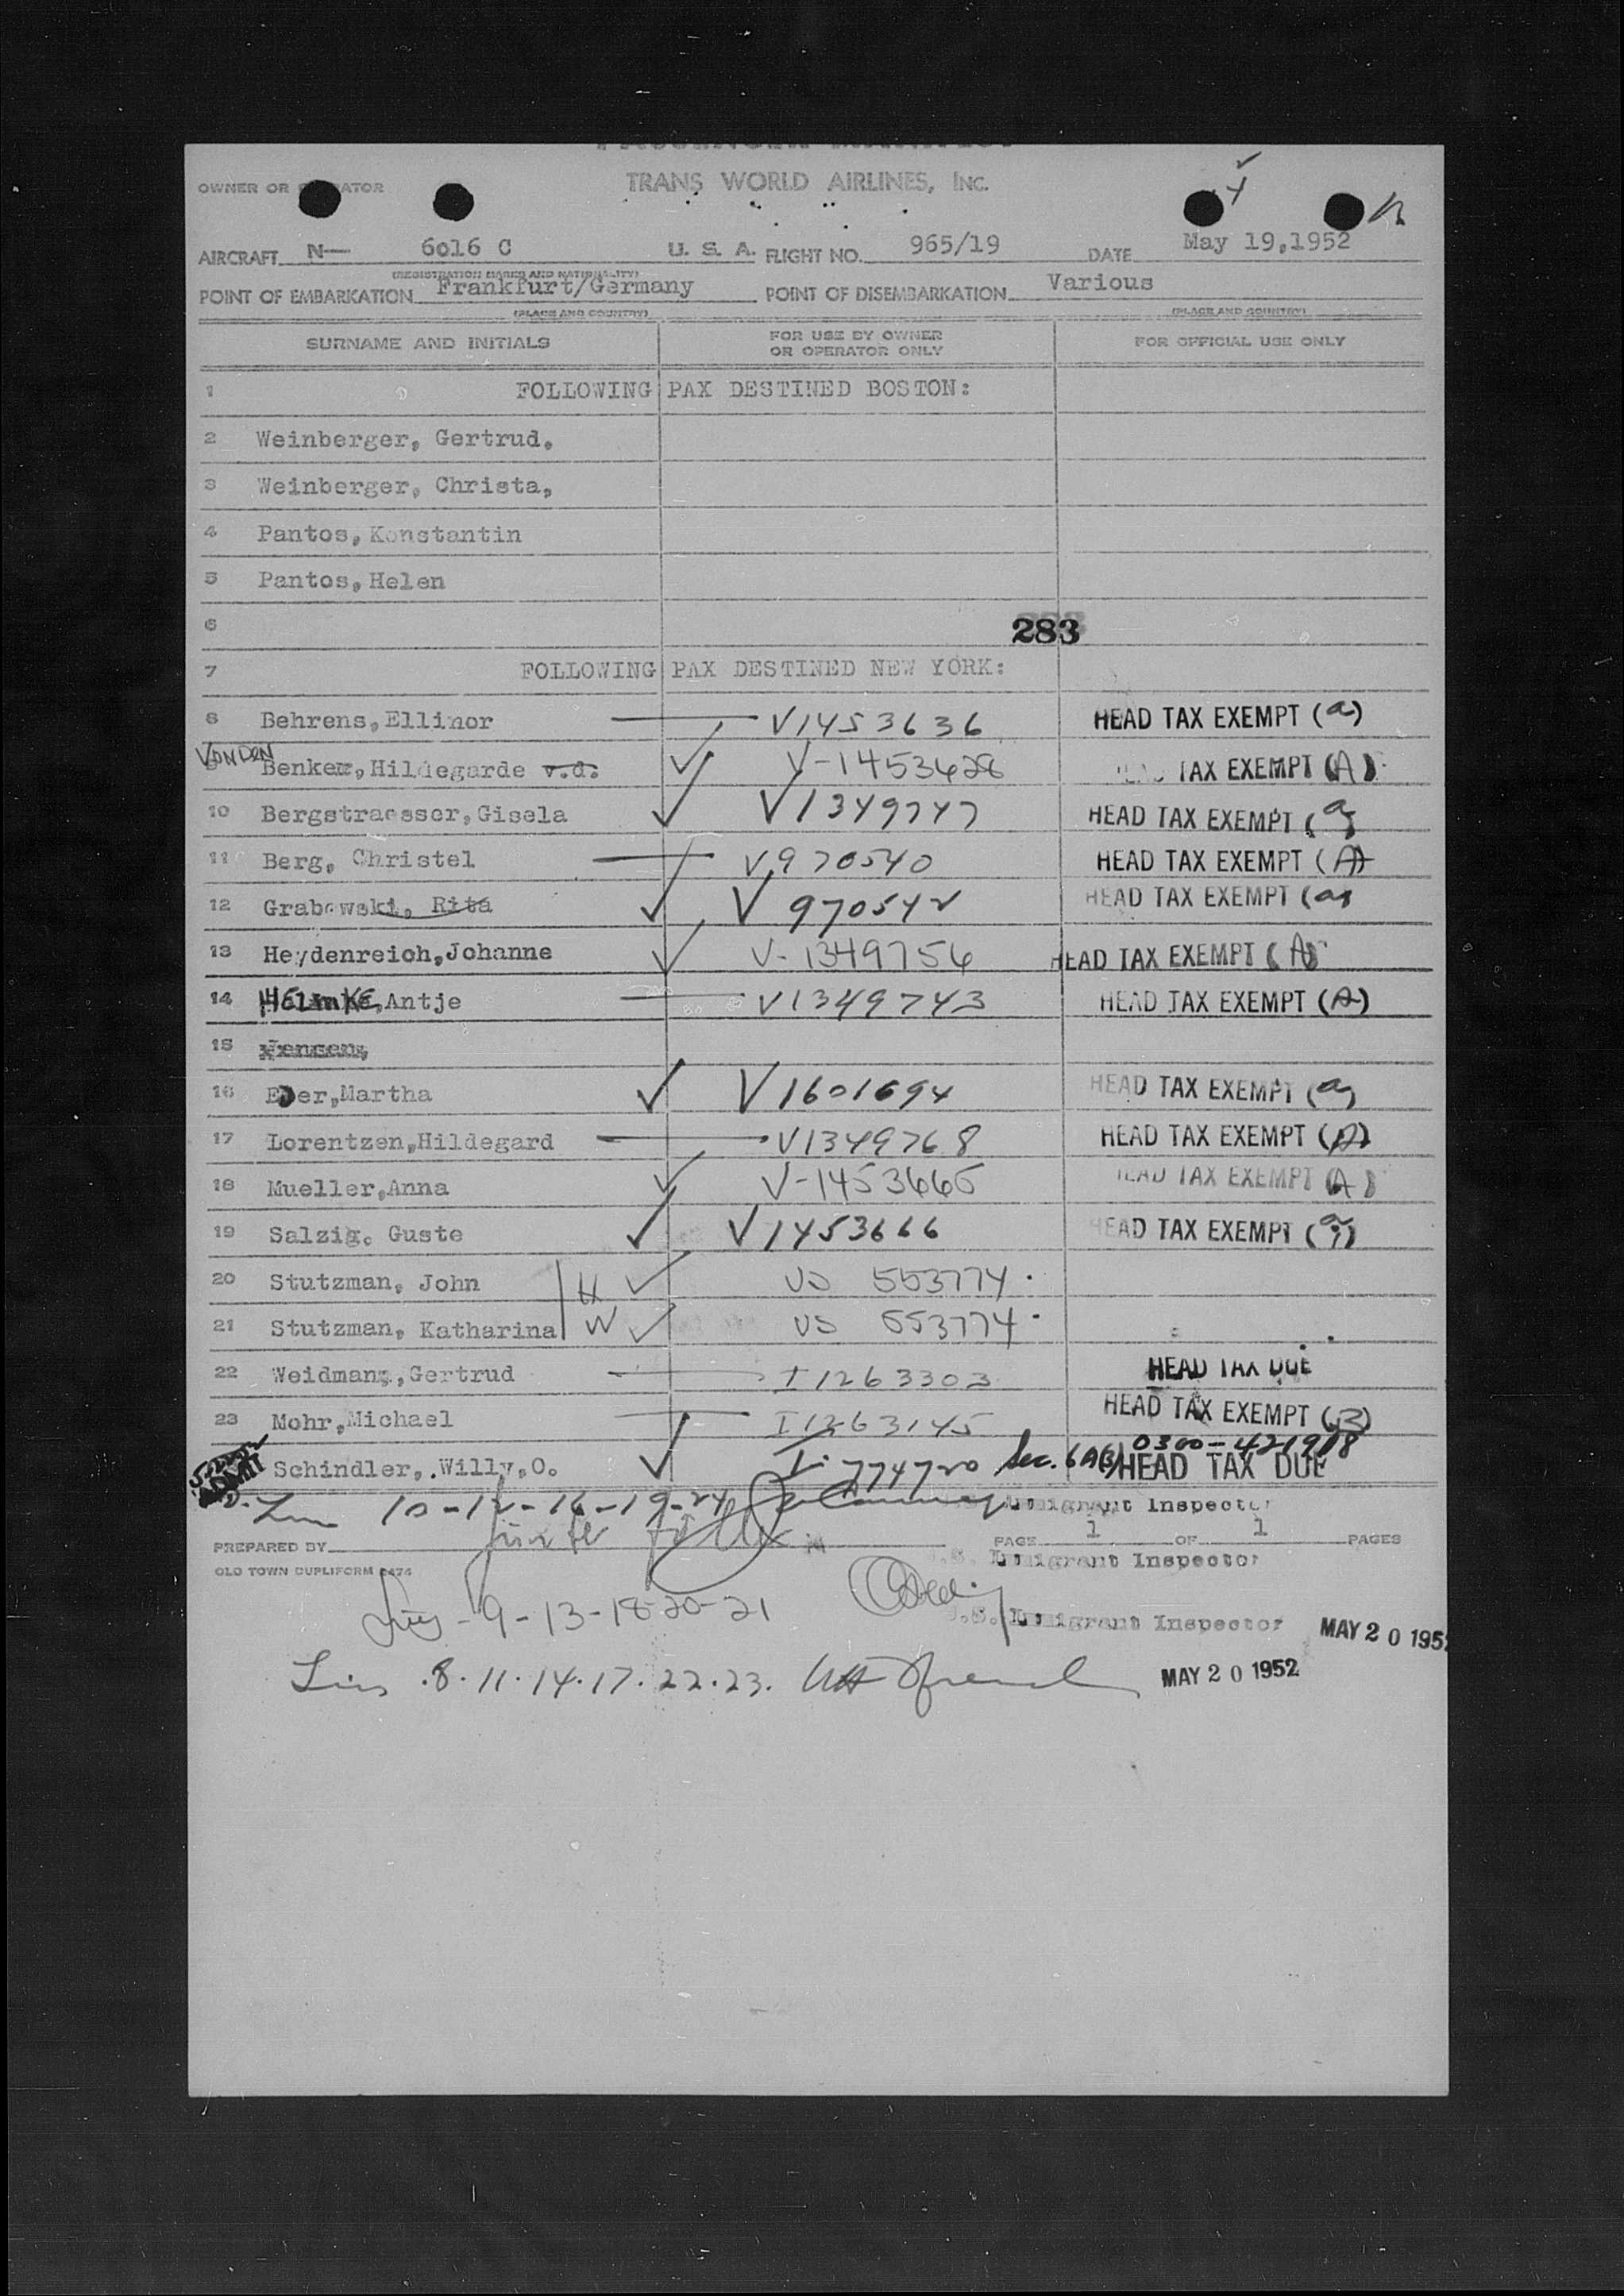 PASSENGER MANIFEST
OWNER OR OPERATOR TRANS WORLD AIRLINES, INC.
AIRCRAFT N— 6016 C U. S. A. FLIGHT NO. 965/19 DATE May 19,1952
(REGISTRATION MARKS AND NATIONALITY)
POINT OF EMBARKATION Frankfurt/Germany POINT OF DISEMBARKATION Various
(PLACE AND COUNTRY) (PLACE AND COUNTRY)
SURNAME AND INITIALS FOR USE BY OWNER OR OPERATOR ONLY FOR OFFICIAL USE ONLY
1 FOLLOWING PAX DESTINED BOSTON:
2 Weinberger, Gertrud.
3 Weinberger, Christa,
4 Pantos, Konstantin
5 Pantos, Helen
6 283
7 FOLLOWING PAX DESTINED NEW YORK:
8 Behrens, Ellinor V1453636 HEAD TAX EXEMPT (a)
VONDEN
9 Benker, Hildegarde v.d. V-1453628 HEAD TAX EXEMPT (A)
10 Bergstraesser, Gisela V1349747 HEAD TAX EXEMPT (a)
11 Berg, Christel V970540 HEAD TAX EXEMPT (A)
12 Grabowski, Rita V970542 HEAD TAX EXEMPT (a)
13 Heydenreich, Johanne V-1349756 HEAD TAX EXEMPT (A)
14 HElmKE, Antje V1349743 HEAD TAX EXEMPT (A)
15 Jensen,
16 Eder, Martha V1601694 HEAD TAX EXEMPT (a)
17 Lorentzen, Hildegard V1349768 HEAD TAX EXEMPT (A)
18 Mueller, Anna V-1453665 HEAD TAX EXEMPT (A)
19 Salzig. Guste V1453666 HEAD TAX EXEMPT (a)
20 Stutzman, John H US 553774
21 Stutzman, Katharina W US 553774
22 Weidmann, Gertrud I1263303 HEAD TAX DUE
23 Mohr, Michael I1263145 HEAD TAX EXEMPT (B)
0300-421918
ADMIT Schindler, Willy, O. V-774720 Sec. 6 A(3) HEAD TAX DUE
Lin 10-12-16-19-24 Immigrant Inspector
PREPARED BY PAGE 1 OF 1 PAGES
U.S. Immigrant Inspector
OLD TOWN DUPLIFORM 5474
Lins - 9-13-18-20-21 U.S. Immigrant Inspector MAY 20 1952
Lins .8.11.14.17.22.23. MAY 20 1952